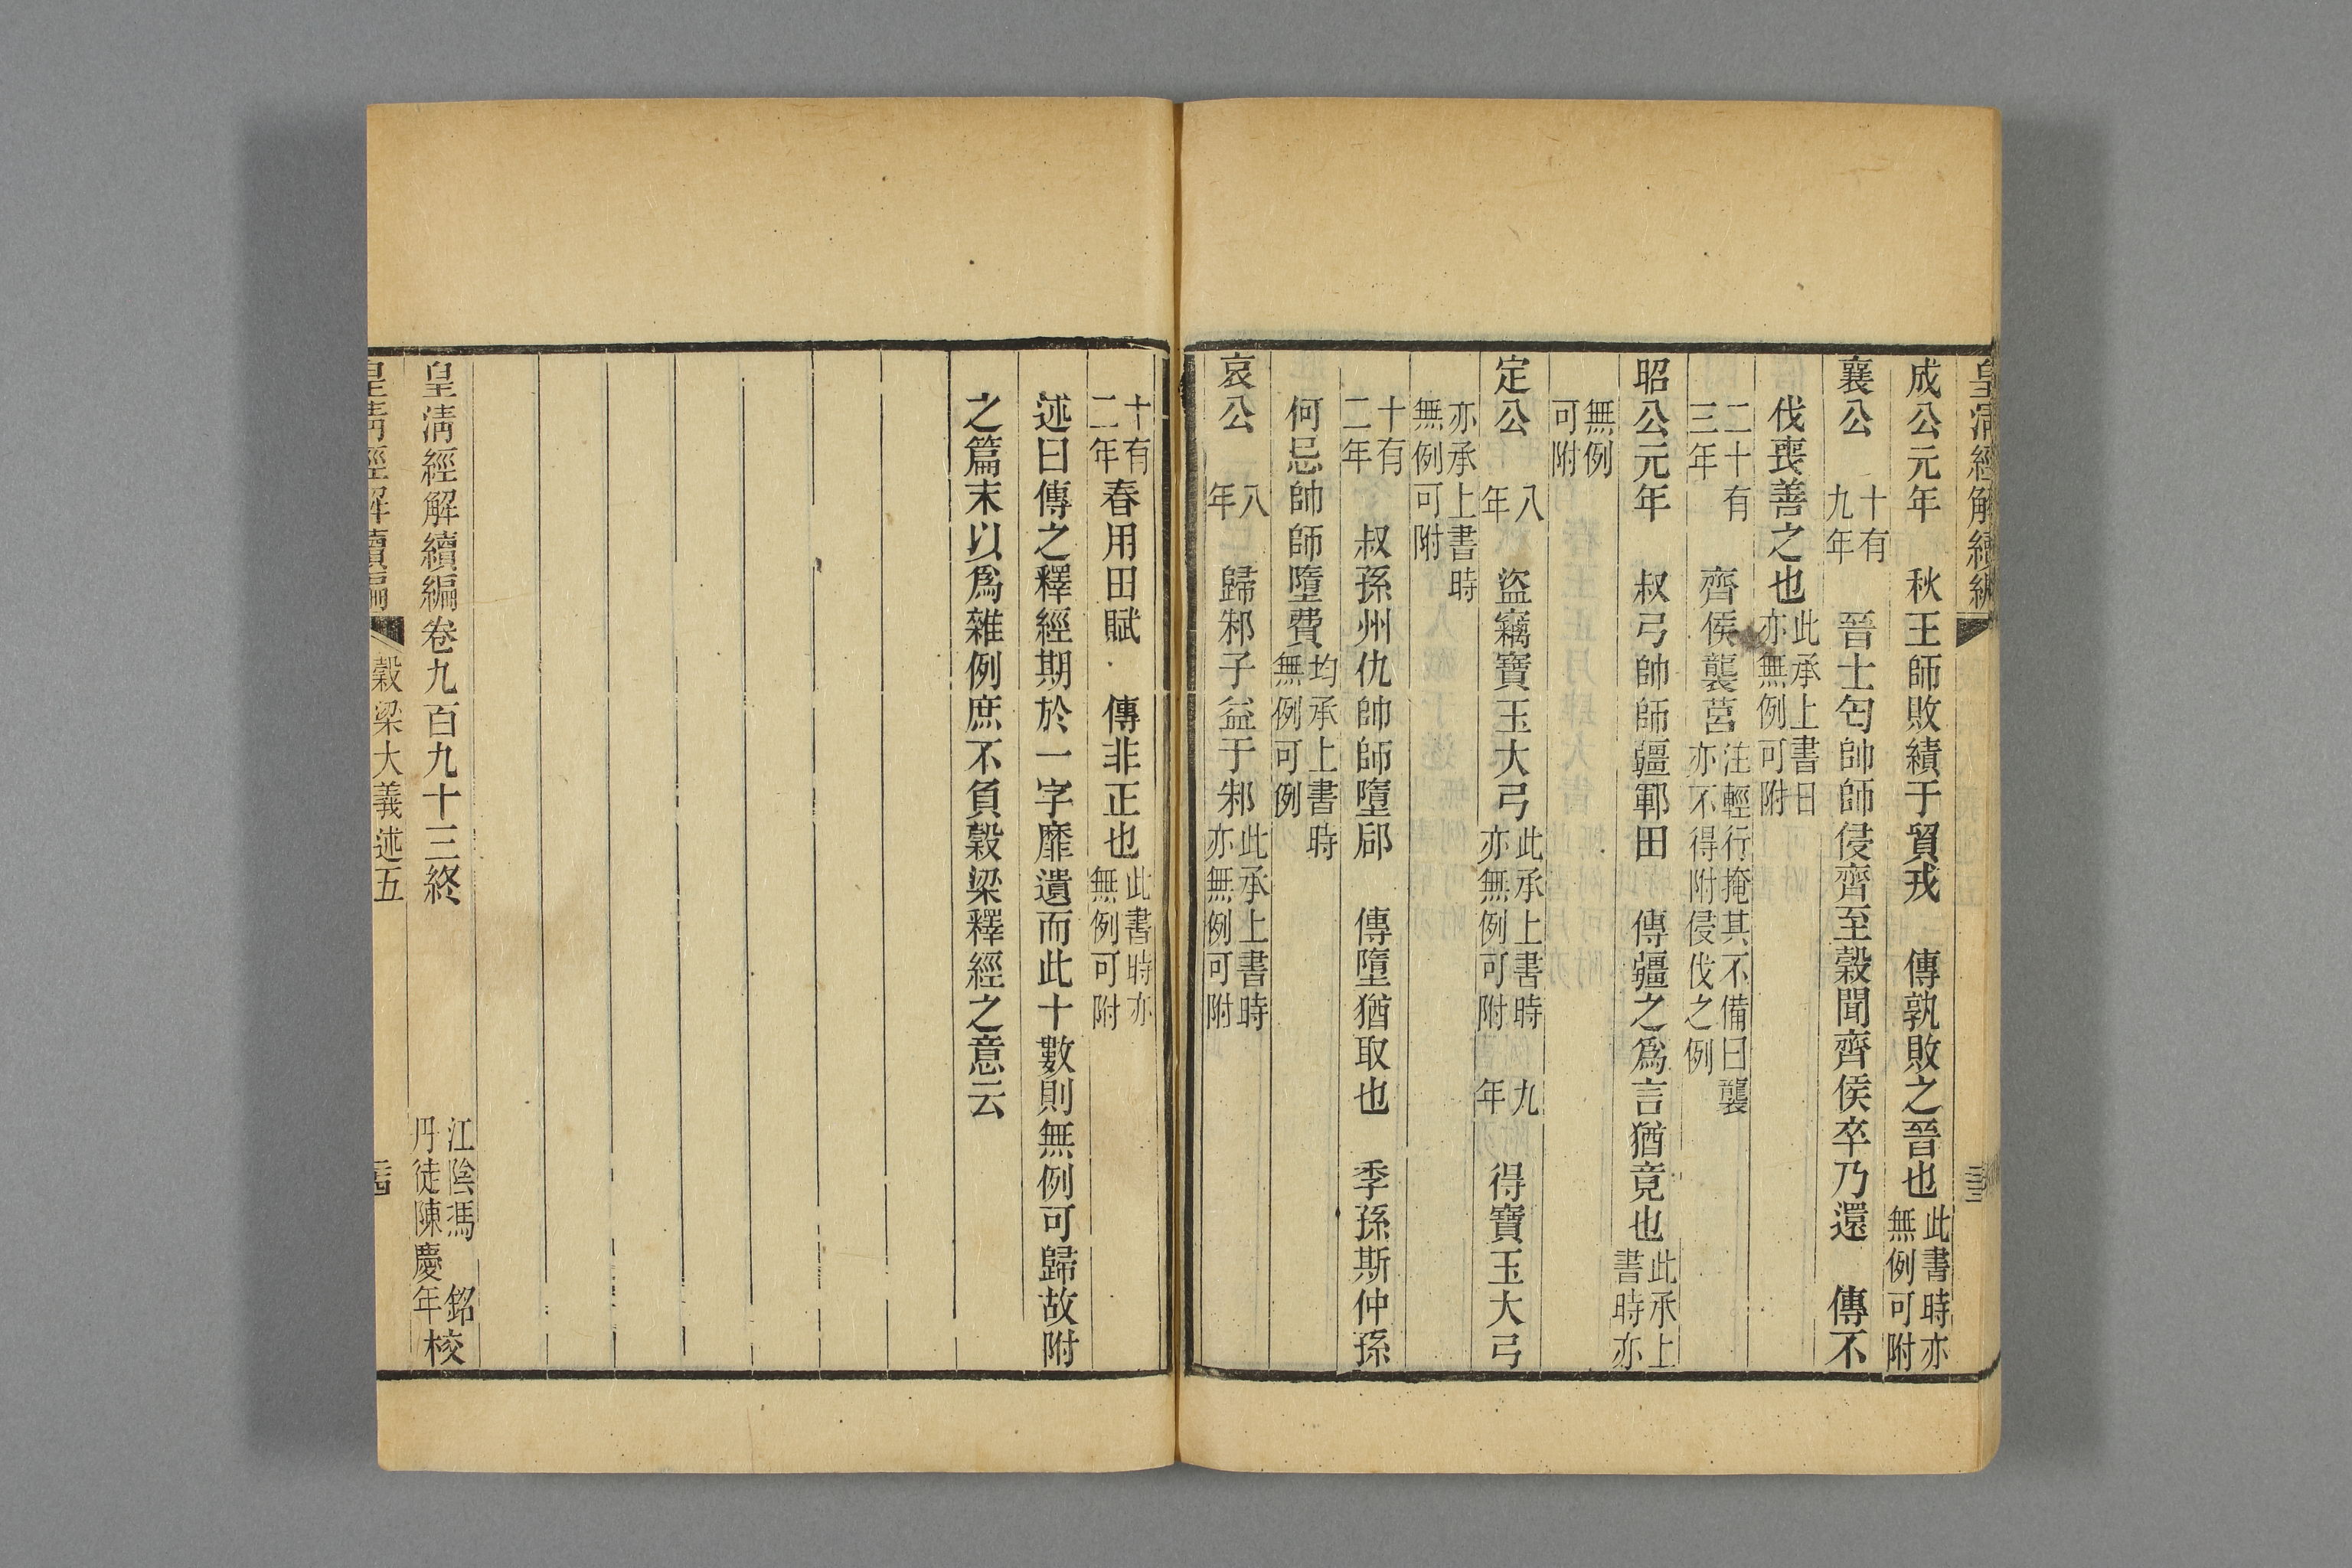 皇清經解續編
成公元年　秋王師敗績于貿戎　傳孰敗之晉也此書時亦無例可附
襄公　十有九年　晉士匄帥師侵齊至穀聞齊侯卒乃還　傳不
伐喪善之也此承上書日亦無例可附
二十有三年　齊侯襲莒注輕行掩其不備曰襲亦不得附侵伐之例
昭公元年　叔弓帥師疆鄆田　傳疆之爲言猶竟也此承上書時亦
無例可附
定公　八年　盜竊寶玉大弓此承上書時亦無例可附　九年　得寶玉大弓
亦承上書時無例可附
十有二年　叔孫州仇帥師墮郈　傳墮猶取也　季孫斯仲孫
何忌帥師墮費均承上書時無例可例
哀公　八年　歸邾子益于邾此承上書時亦無例可附
十有二年春用田賦　傳非正也此書時亦無例可附
述曰傳之釋經期於一字靡遺而此十數則無例可歸故附
之篇末以爲雜例庶不負穀梁釋經之意云
皇清經解續編卷九百九十三終
江陰馮　銘
丹徒陳慶年校
皇清經解續編　穀梁大義述五